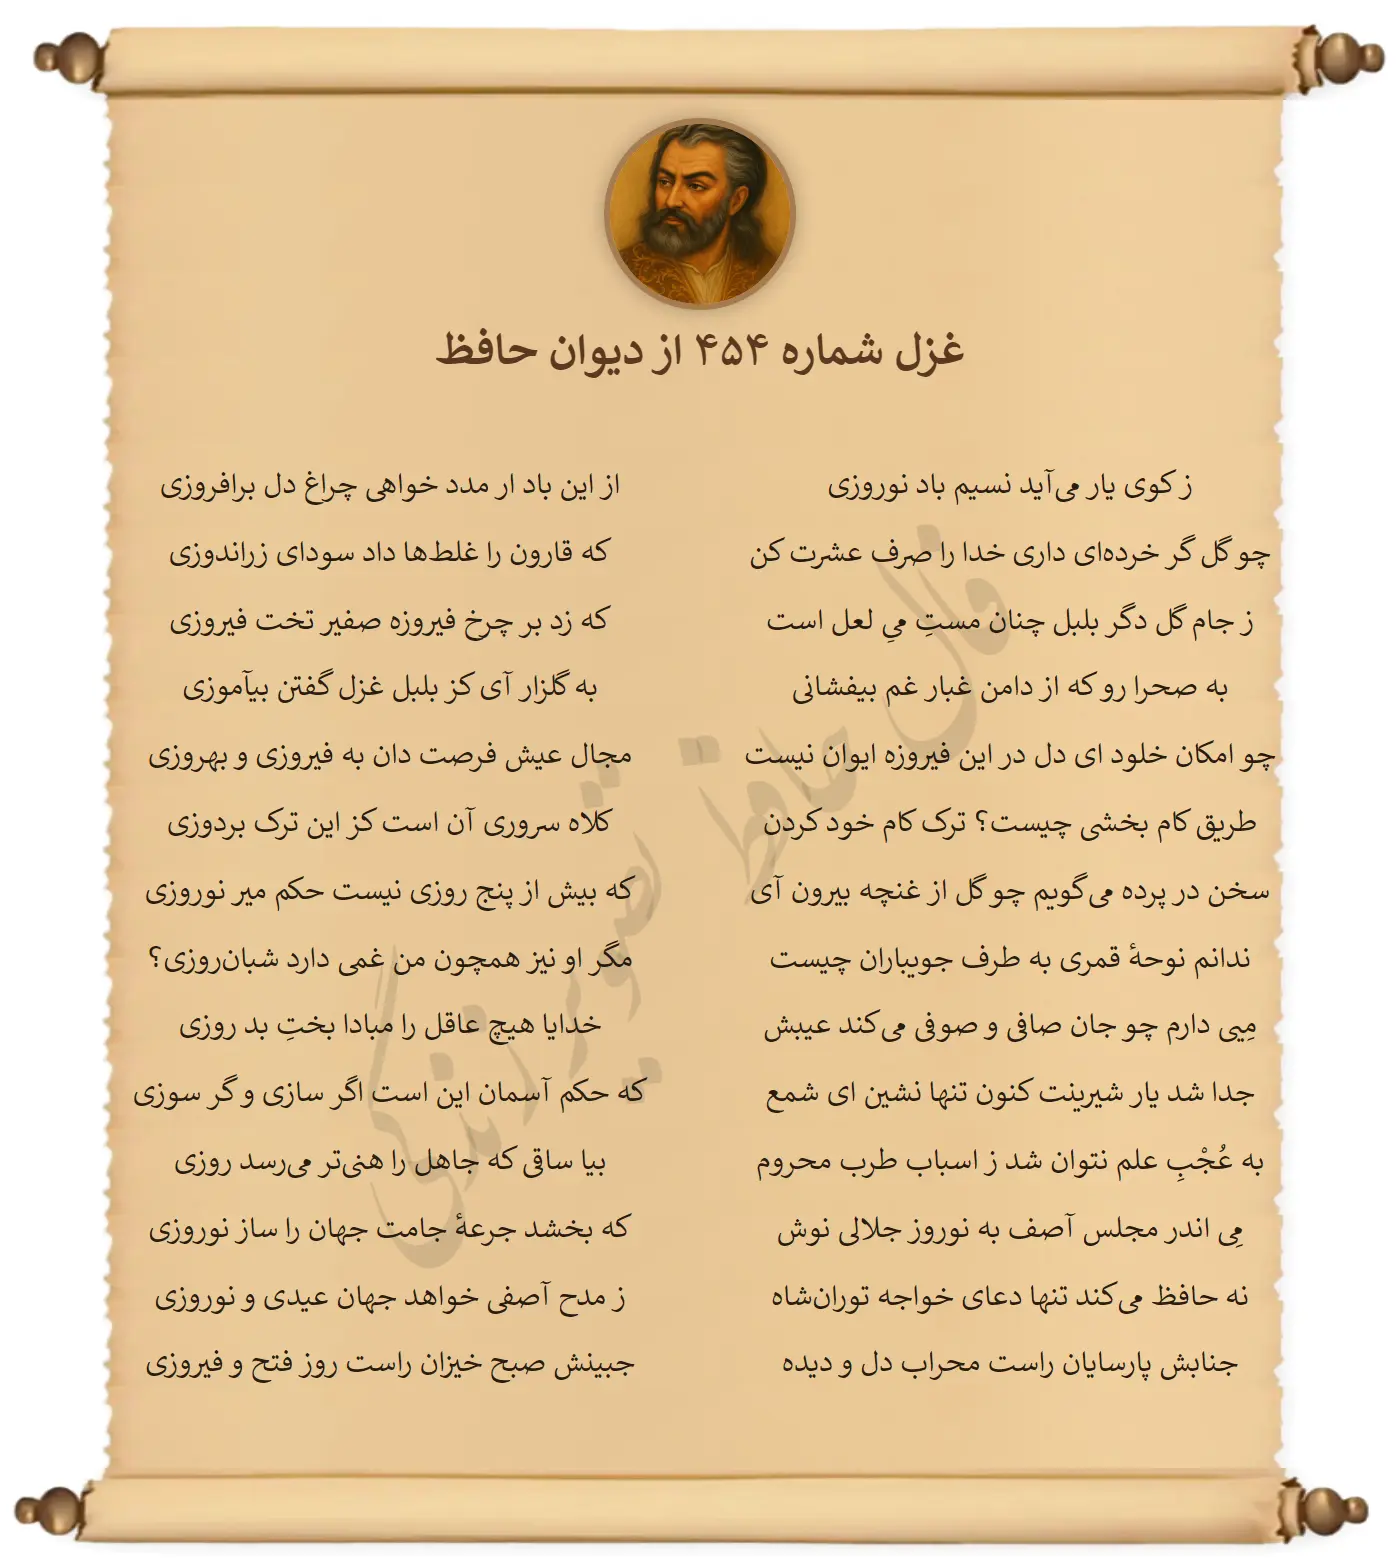 غزل شماره ۴۵۴ از دیوان حافظ
ز کوی یار می‌آید نسیم باد نوروزی از این باد ار مدد خواهی چراغ دل برافروزی
چو گل گر خرده‌ای داری خدا را صرف عشرت کن که قارون را غلط‌ها داد سودای زراندوزی
ز جام گل دگر بلبل چنان مستِ میِ لعل است که زد بر چرخ فیروزه صفیر تخت فیروزی
به صحرا رو که از دامن غبار غم بیفشانی به گلزار آی کز بلبل غزل گفتن بیآموزی
چو امکان خلود ای دل در این فیروزه ایوان نیست مجال عیش فرصت دان به فیروزی و بهروزی
طریق کام بخشی چیست؟ ترک کام خود کردن کلاه سروری آن است کز این ترک بردوزی
سخن در پرده می‌گویم چو گل از غنچه بیرون آی که بیش از پنج روزی نیست حکم میر نوروزی
ندانم نوحهٔ قمری به طرف جویباران چیست مگر او نیز همچون من غمی دارد شبان‌روزی؟
مِیی دارم چو جان صافی و صوفی می‌کند عیبش خدایا هیچ عاقل را مبادا بختِ بد روزی
جدا شد یار شیرینت کنون تنها نشین ای شمع که حکم آسمان این است اگر سازی و گر سوزی
به عُجْبِ علم نتوان شد ز اسباب طرب محروم بیا ساقی که جاهل را هنی‌تر می‌رسد روزی
مِی اندر مجلس آصف به نوروز جلالی نوش که بخشد جرعهٔ جامت جهان را ساز نوروزی
نه حافظ می‌کند تنها دعای خواجه توران‌شاه ز مدح آصفی خواهد جهان عیدی و نوروزی
جنابش پارسایان راست محراب دل و دیده جبینش صبح خیزان راست روز فتح و فیروزی
فال حافظ تصویر زندگی